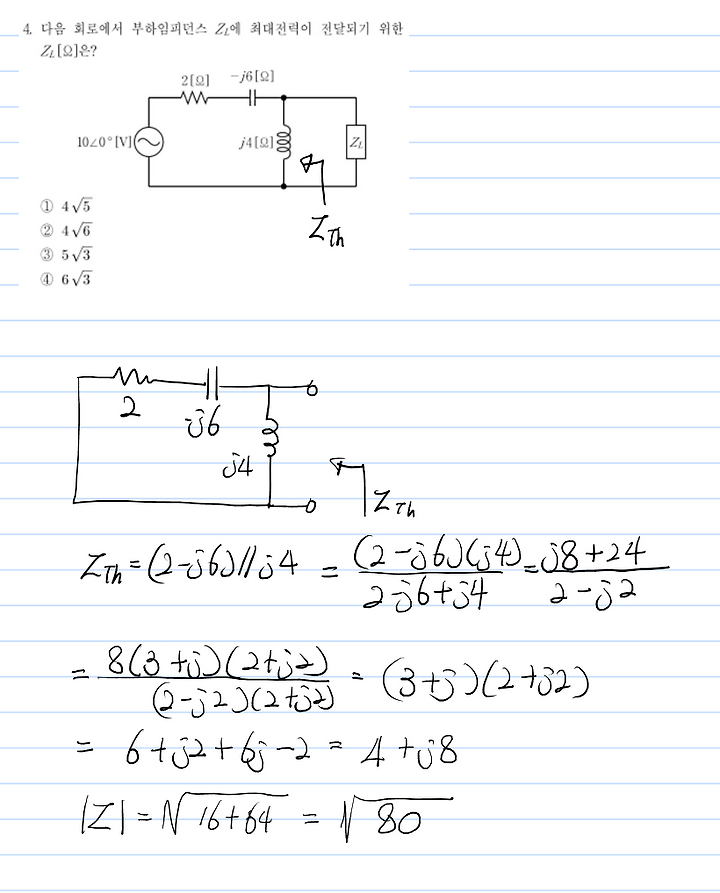 4. 다음 회로에서 부하임피던스 Z_L에 최대전력이 전달되기 위한
Z_L[Ω]은?
2[Ω] -j6[Ω]
10∠0°[V] j4[Ω] Z_L
Z_Th
① 4√5
② 4√6
③ 5√3
④ 6√3
2 -j6
j4
Z_Th
Z_Th = (2-j6)//j4 = (2-j6)(j4)/(2-j6+j4) = (j8+24)/(2-j2)
= 8(3+j)(2+j2)/((2-j2)(2+j2)) = (3+j)(2+j2)
= 6+j2+6j-2 = 4+j8
|Z| = √(16+64) = √80